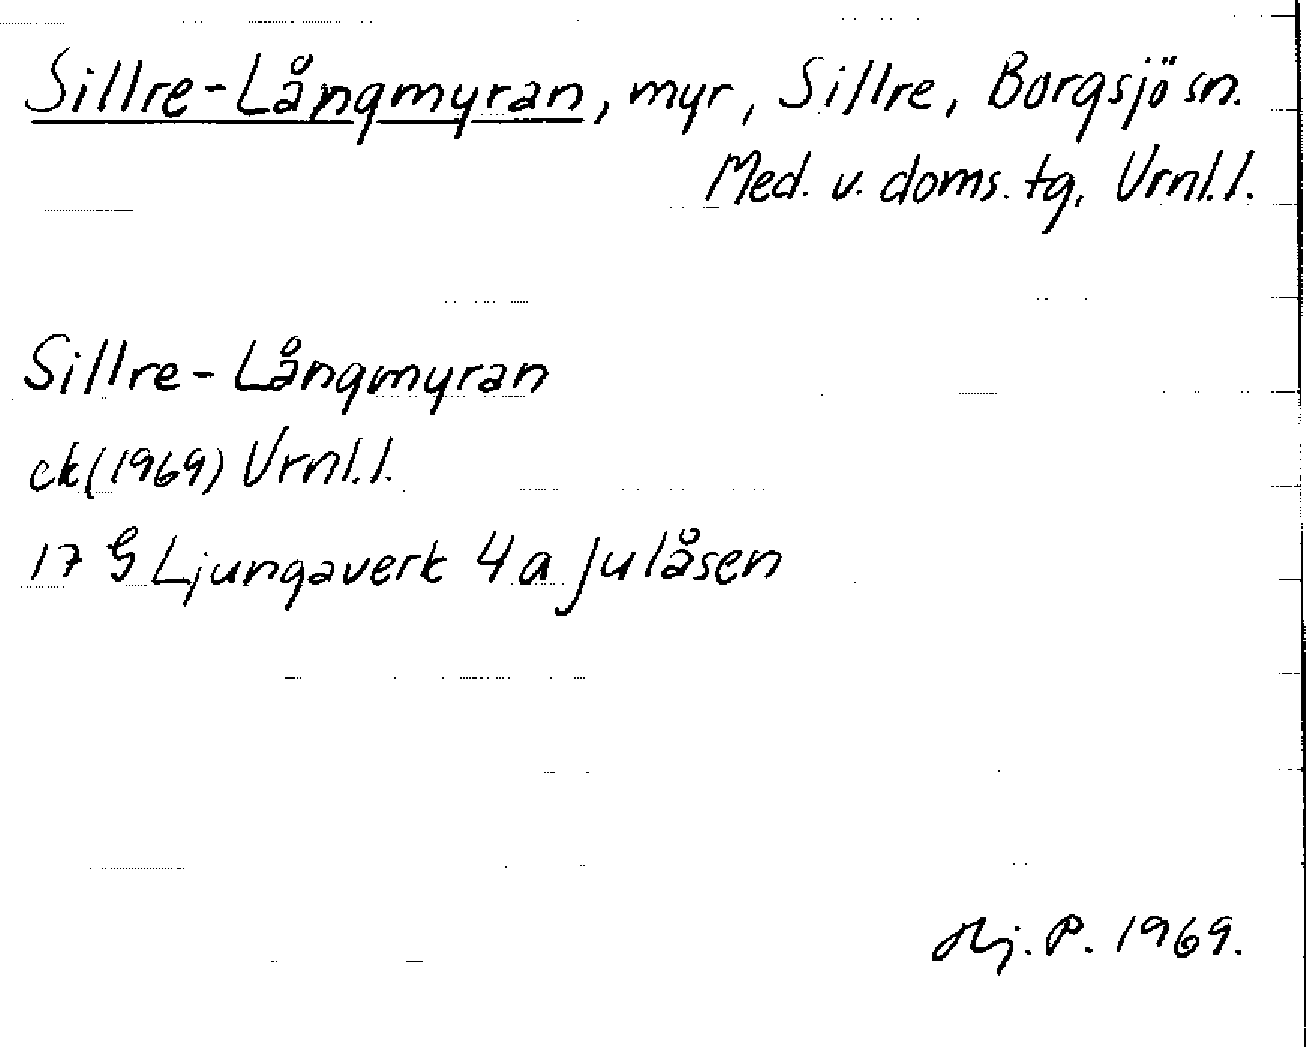 Sillre-Långmyran, myr, Sillre, Borgsjö sn.
Med. v. doms. tg. Vrnl.l.
Sillre-Långmyran
ek(1969) Vrnl.l.
17 G Ljungaverk 4a Julåsen
Hj. P. 1969.